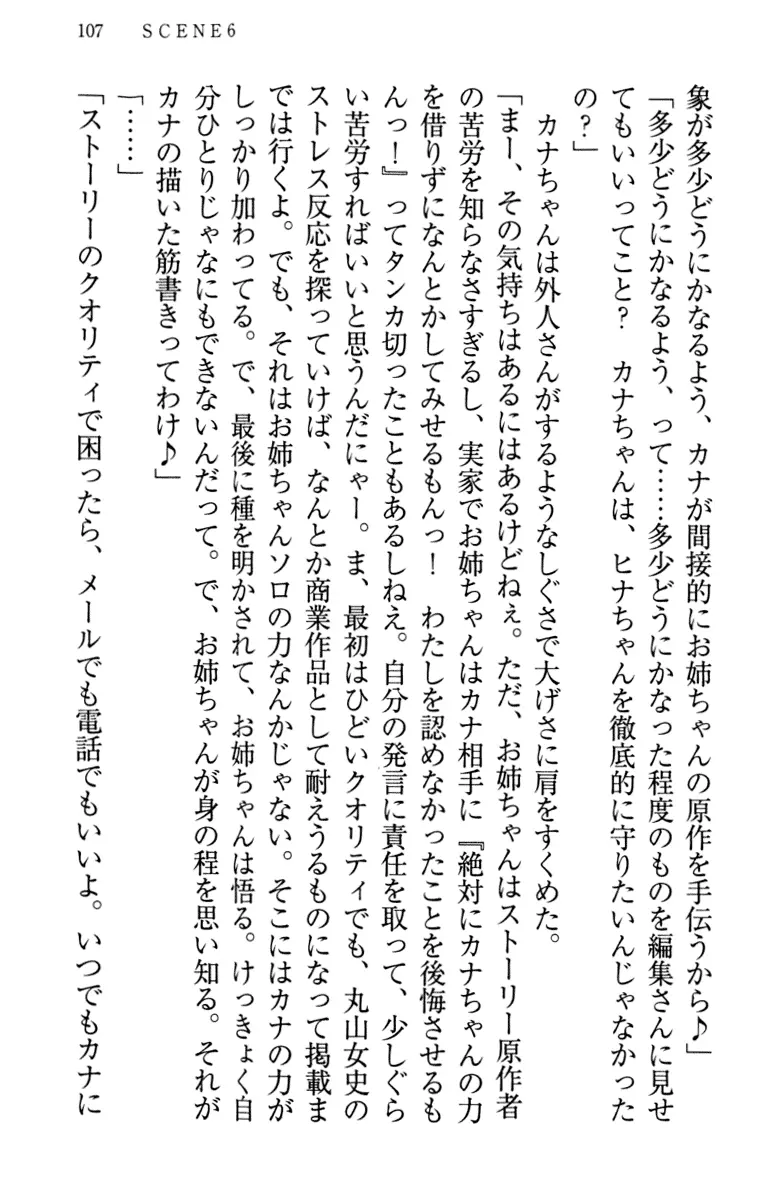 107 SCENE6
象が多少どうにかなるよう、カナが間接的にお姉ちゃんの原作を手伝うから♪」
「多少どうにかなるよう、って……多少どうにかなった程度のものを編集さんに見せ
てもいいってこと？　カナちゃんは、ヒナちゃんを徹底的に守りたいんじゃなかった
の？」
　カナちゃんは外人さんがするようなしぐさで大げさに肩をすくめた。
「まー、その気持ちはあるにはあるけどねぇ。ただ、お姉ちゃんはストーリー原作者
の苦労を知らなさすぎるし、実家でお姉ちゃんはカナ相手に『絶対にカナちゃんの力
を借りずになんとかしてみせるもんっ！　わたしを認めなかったことを後悔させるも
んっ！』ってタンカ切ったこともあるしねえ。自分の発言に責任を取って、少しぐら
い苦労すればいいと思うんだにゃー。ま、最初はひどいクオリティでも、丸山女史の
ストレス反応を探っていけば、なんとか商業作品として耐えうるものになって掲載ま
では行くよ。でも、それはお姉ちゃんソロの力なんかじゃない。そこにはカナの力が
しっかり加わってる。で、最後に種を明かされて、お姉ちゃんは悟る。けっきょく自
分ひとりじゃなにもできないんだって。で、お姉ちゃんが身の程を思い知る。それが
カナの描いた筋書きってわけ♪」
「……」
「ストーリーのクオリティで困ったら、メールでも電話でもいいよ。いつでもカナに